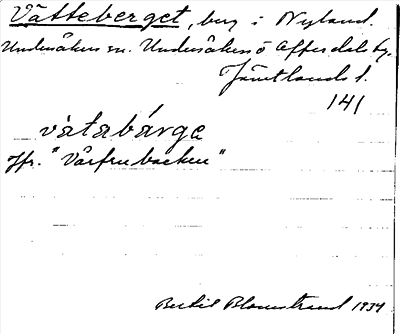 Vätteberget, berg i Nyland.
Undersåkers sn. Undersåkers ö
Jämtlands l.
141
vàtabárgα
Jfr. "Vårfrubacken"
Bertil Blomstrand 1934